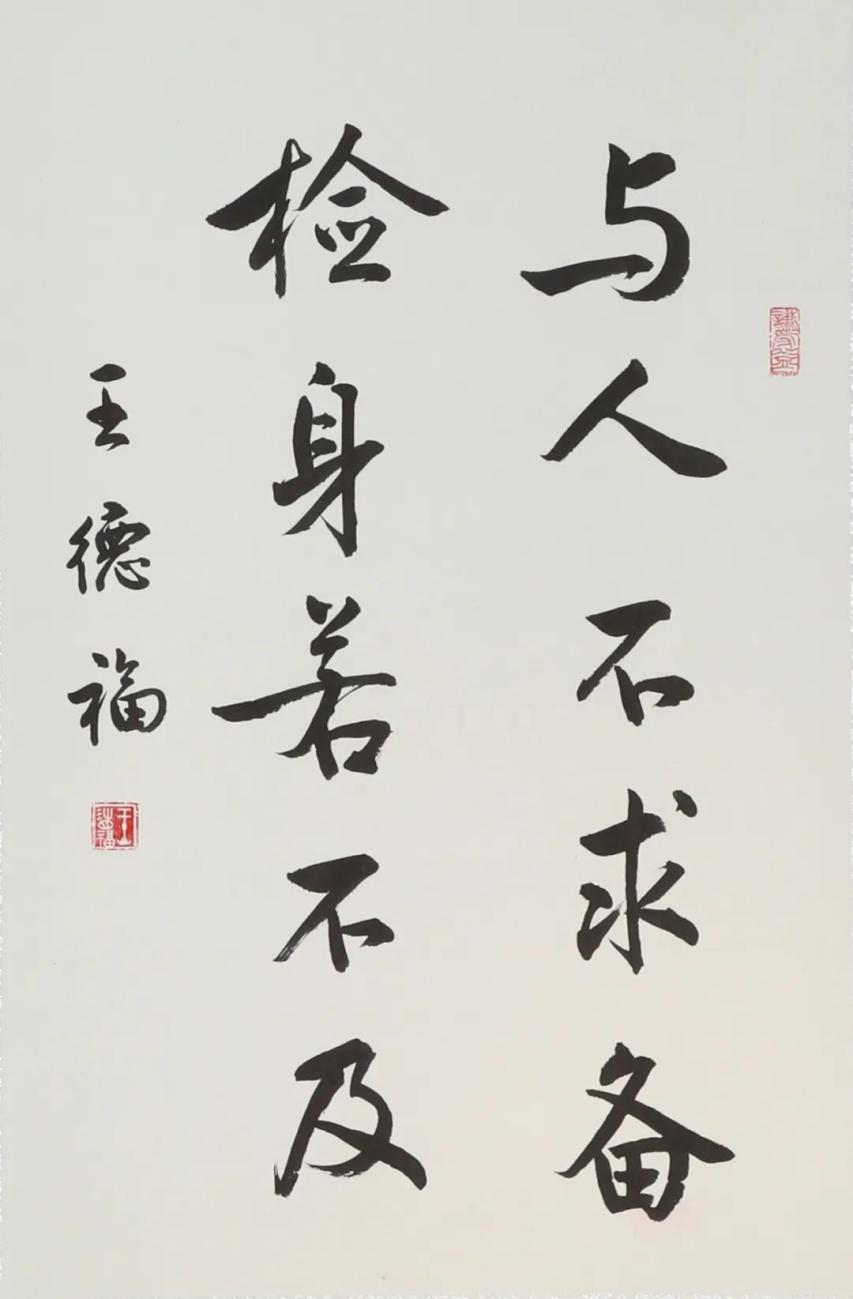 与人不求备
检身若不及
王德福